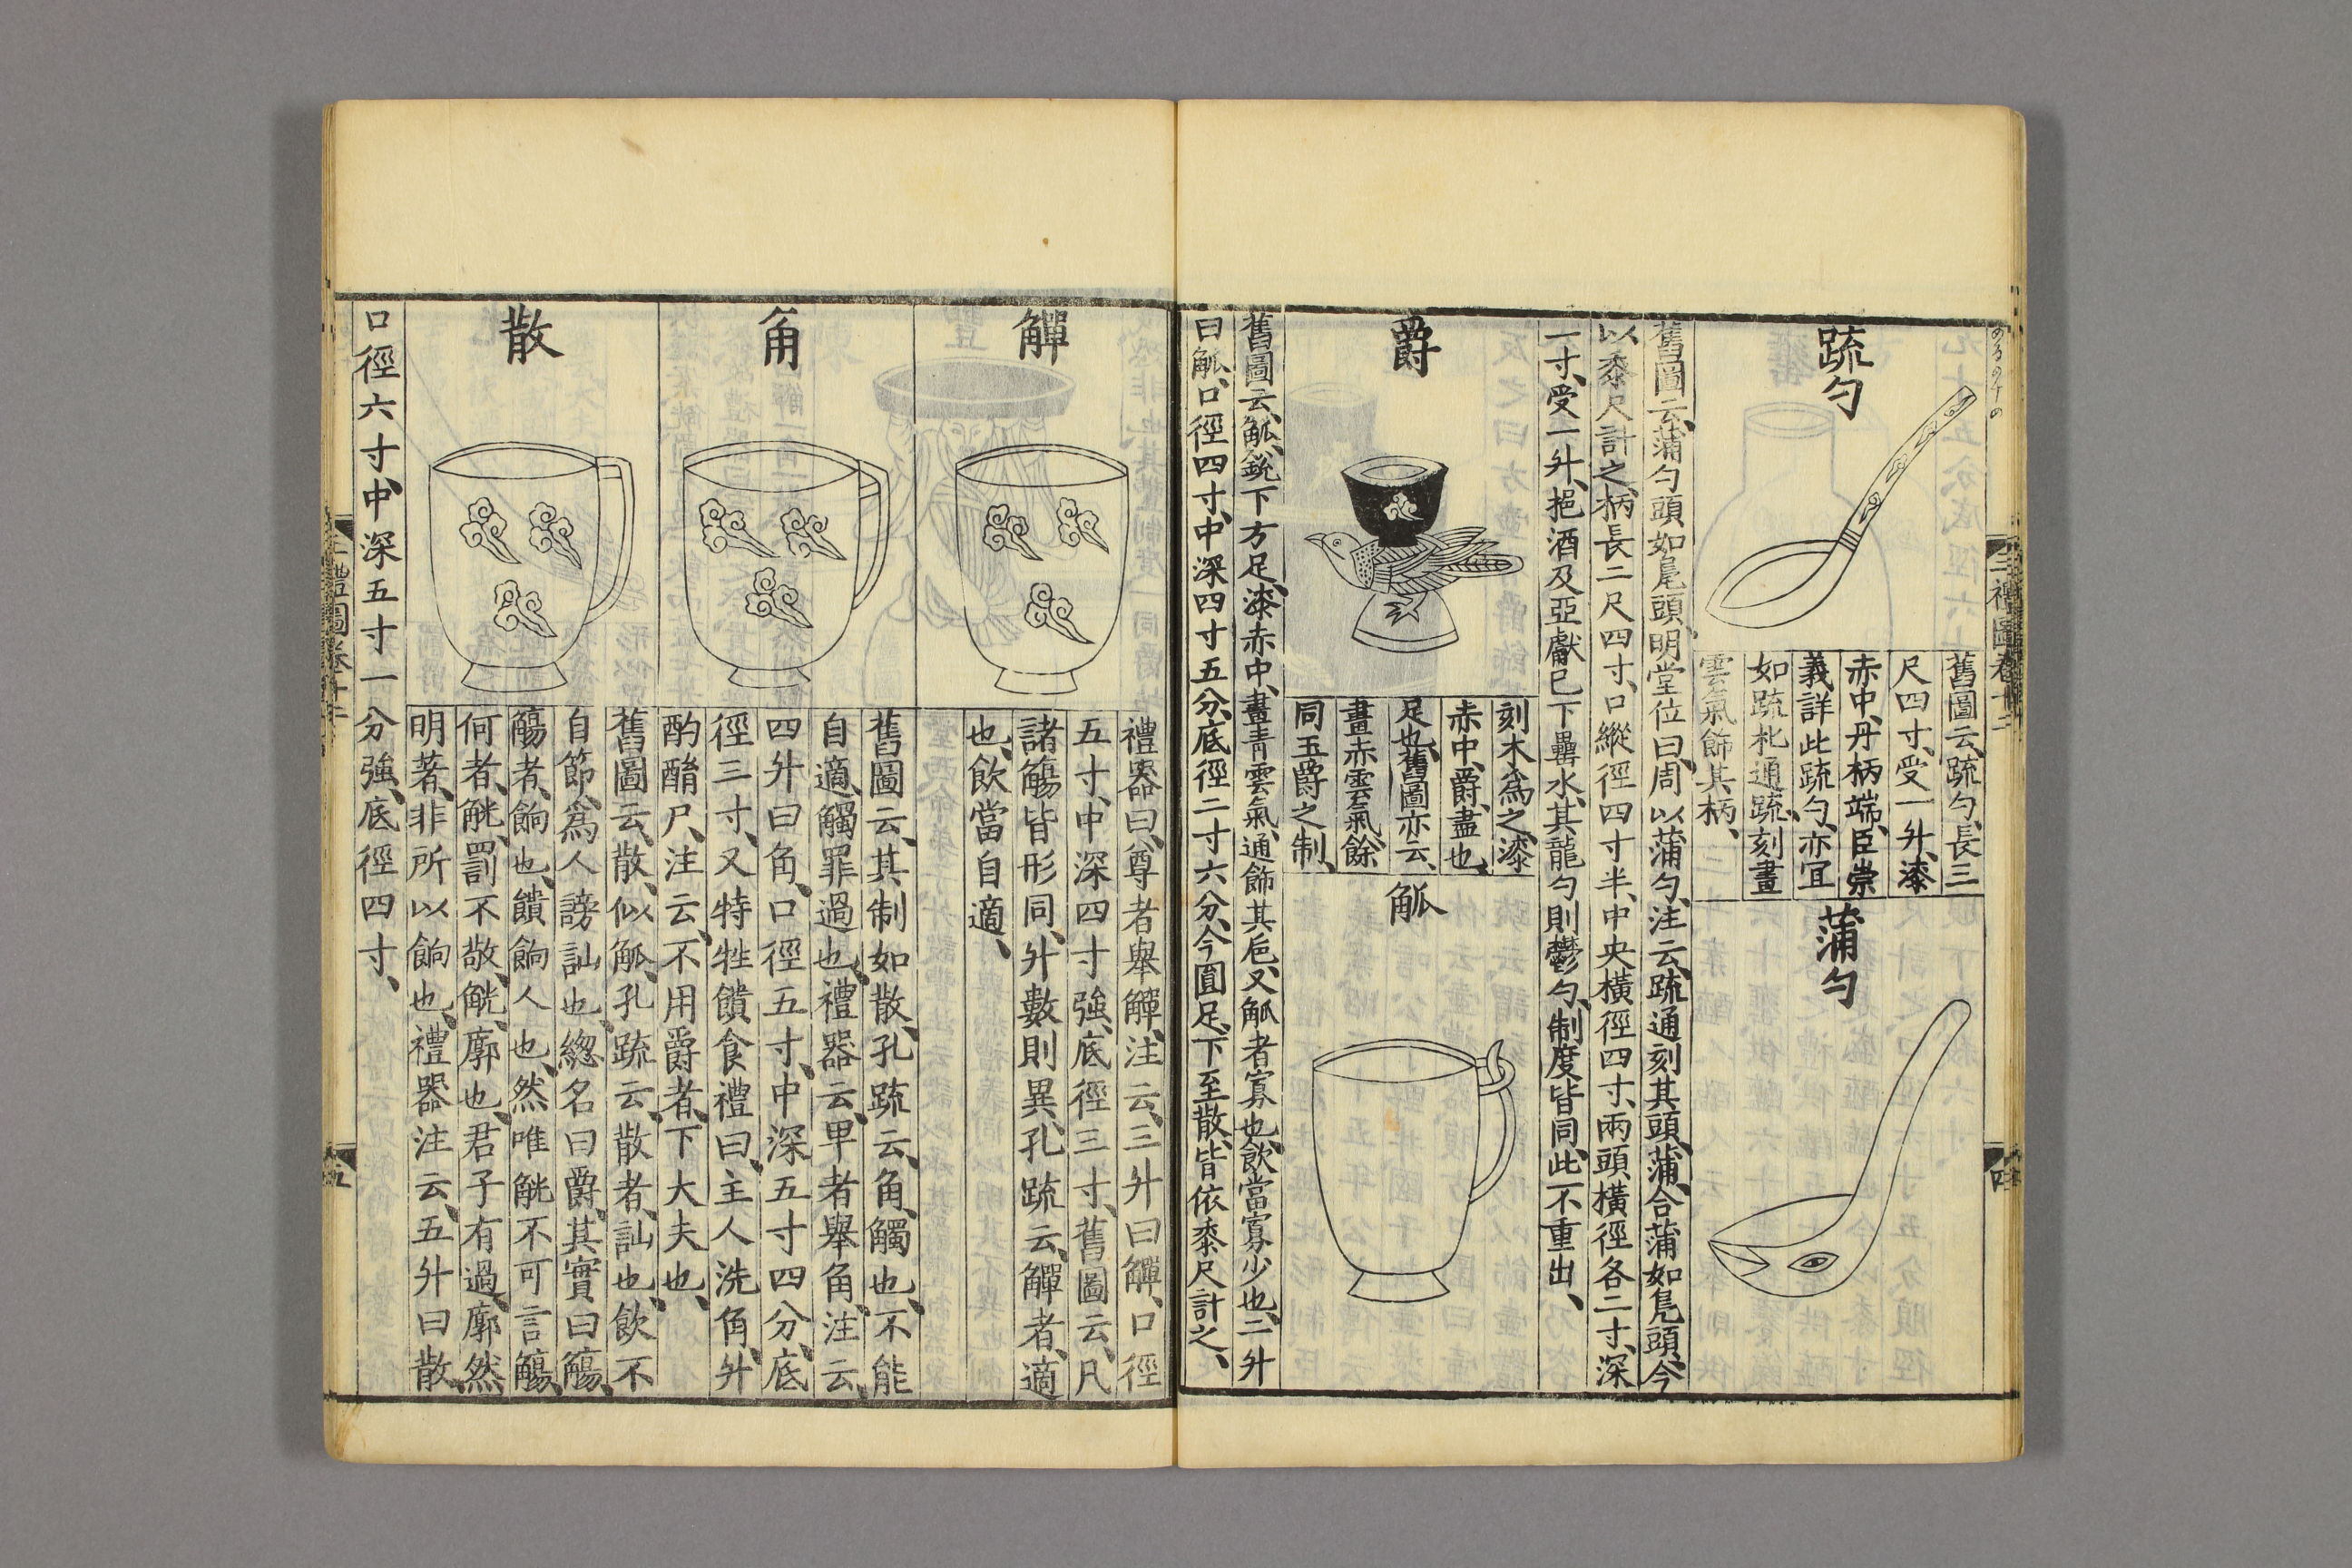 三禮圖卷十二
四
疏勺
舊圖云、疏勺、長三
尺四寸、受一升、漆
赤中、丹柄端、臣崇
義詳此疏勺、亦宜
如疏朼通疏、刻畫
雲氣飾其柄、
蒲勺
舊圖云、蒲勺頭如鳧頭、明堂位曰、周以蒲勺、注云、疏通刻其頭、蒲、合蒲如鳧頭、今
以黍尺計之、柄長二尺四寸、口縱徑四寸半、中央橫徑四寸、兩頭橫徑各二寸、深
一寸、受一升、挹酒及亞獻已下罍水、其龍勺則鬱勺、制度皆同此、不重出、
爵
刻木爲之、漆
赤中、爵、盡也、
足也、舊圖亦云、
畫赤雲氣、餘
同玉爵之制、
觚
舊圖云、觚、銳下方足、漆赤中、畫青雲氣、通飾其巵、又觚者寡也、飲當寡少也、二升
曰觚、口徑四寸、中深四寸五分、底徑二寸六分、今圓足、下至散、皆依黍尺計之、
觶
禮器曰、尊者舉觶、注云、三升曰觶、口徑
五寸、中深四寸強、底徑三寸、舊圖云、凡
諸觴皆形同、升數則異、孔疏云、觶者、適
也、飲當自適、
角
舊圖云、其制如散、孔疏云、角、觸也、不能
自適、觸罪過也、禮器云、卑者舉角、注云、
四升曰角、口徑五寸、中深五寸四分、底
徑三寸、又特牲饋食禮曰、主人洗角、升
酌酳尸、注云、不用爵者、下大夫也、
散
舊圖云、散、似觚、孔疏云、散者、訕也、飲不
自節、爲人謗訕也、緫名曰爵、其實曰觴、
觴者、餉也、饋餉人也、然唯觥不可言觴、
何者、觥、罰不敬、觥、廓也、君子有過、廓然
明著、非所以餉也、禮器注云、五升曰散、
口徑六寸、中深五寸一分強、底徑四寸、
三禮圖卷十二
五